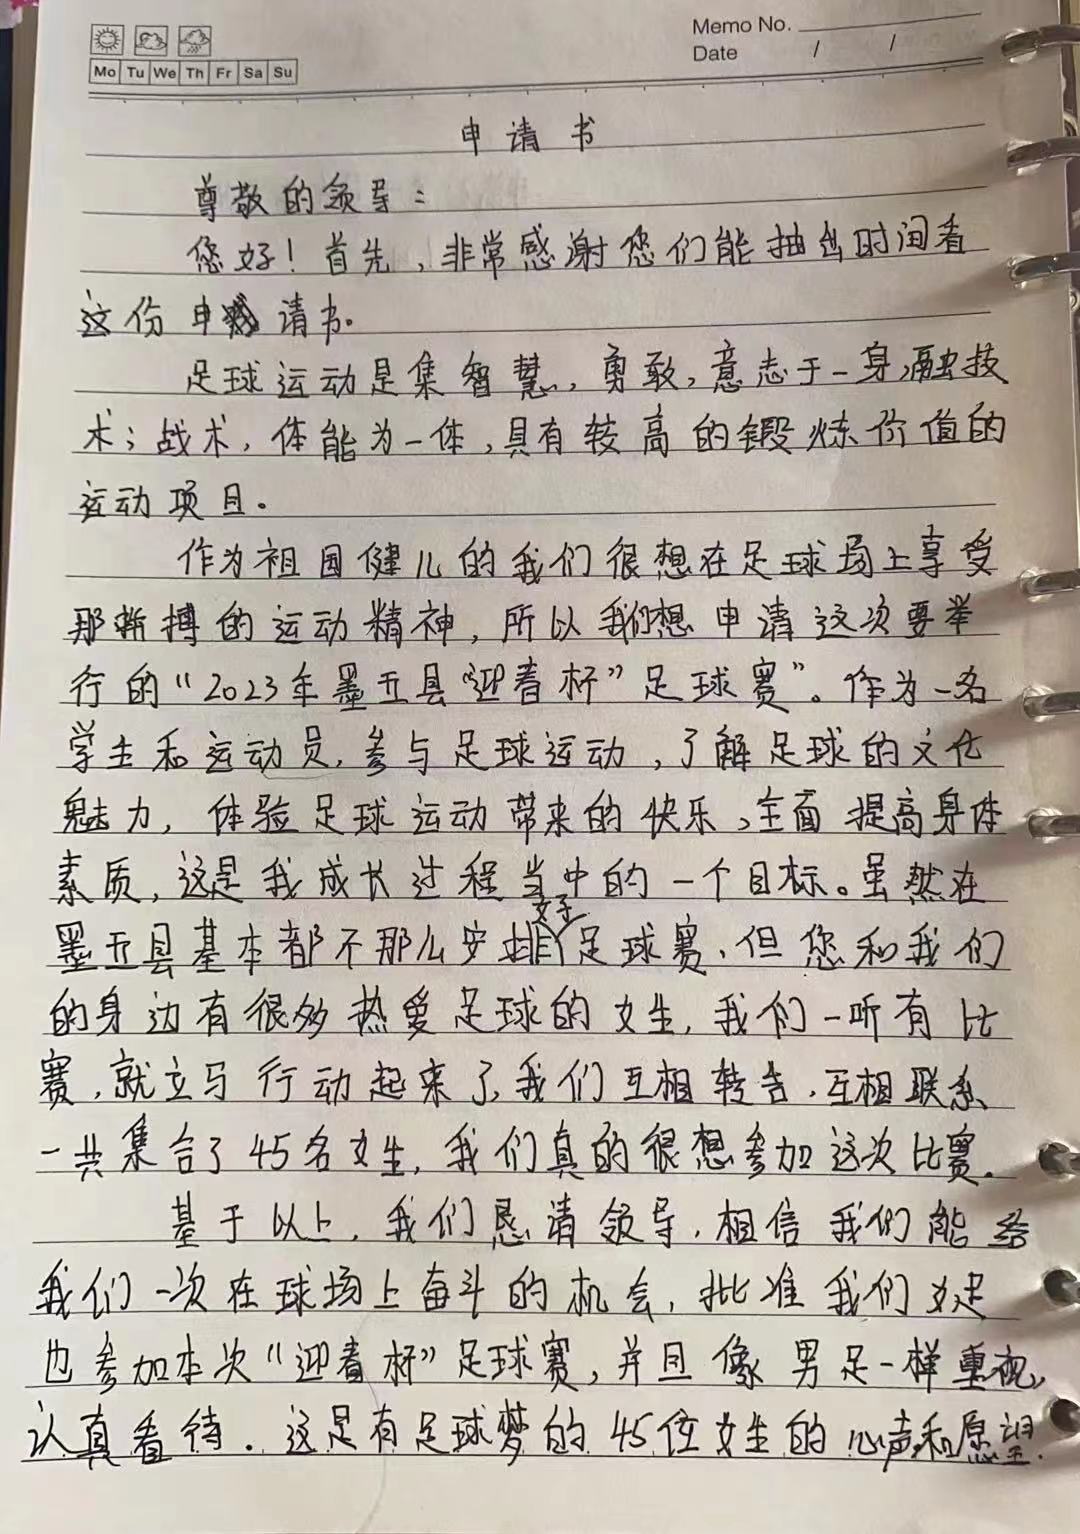 Memo No.
Date / /
Mo Tu We Th Fr Sa Su
申请书
尊敬的领导：
您好！首先，非常感谢您们能抽出时间看
这份申请书.
足球运动是集智慧，勇敢，意志于一身，融技
术；战术，体能为一体，具有较高的锻炼价值的
运动项目。
作为祖国健儿的我们很想在足球场上享受
那拼搏的运动精神，所以我们想申请这次要举
行的“2023年墨玉县“迎春杯”足球赛”。作为一名
学生和运动员，参与足球运动，了解足球的文化
魅力，体验足球运动带来的快乐，全面提高身体
素质，这是我成长过程当中的一个目标。虽然在
墨玉县基本都不那么安排女子足球赛，但您和我们
的身边有很多热爱足球的女生，我们一听有比
赛，就立马行动起来了，我们互相转告，互相联系
一共集合了45名女生，我们真的很想参加这次比赛.
基于以上，我们恳请领导，相信我们能给
我们一次在球场上奋斗的机会，批准我们女足
也参加本次“迎春杯”足球赛，并且像男足一样重视，
认真看待．这是有足球梦的45位女生的心声和愿望.